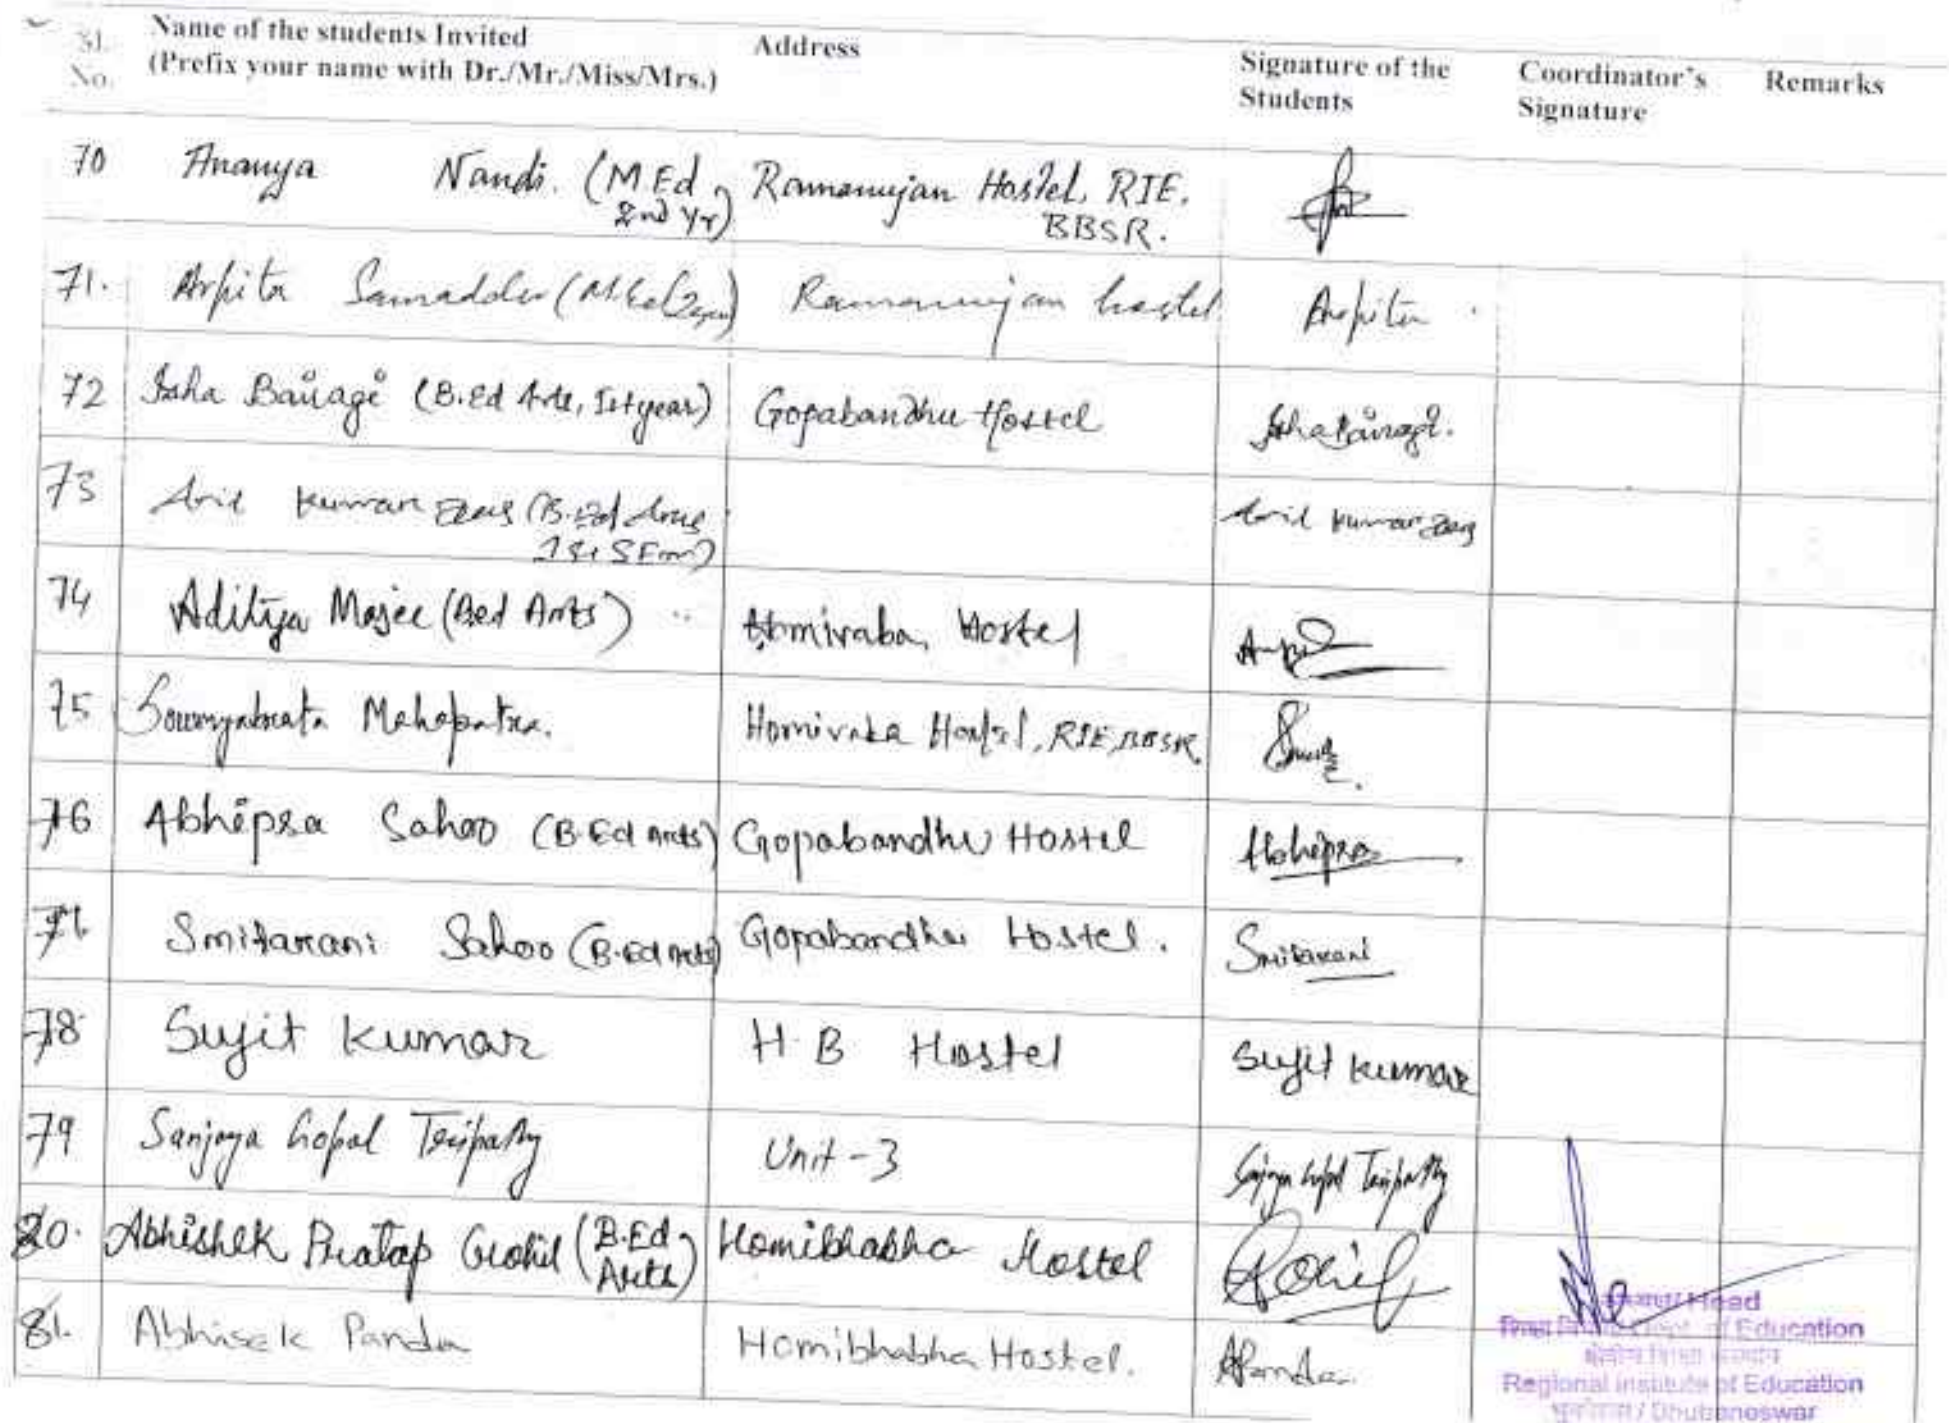 Sl. No. Name of the students Invited (Prefix your name with Dr./Mr./Miss/Mrs.) Address Signature of the Students Coordinator's Signature Remarks
70 Ananya Nandi. (M.Ed 2nd Yr) Ramanujan Hostel, RIE, BBSR.
71. Arpita Samadder (M.Ed 2 year) Ramanujan hostel Arpita
72 Isha Bairagi (B.Ed Arts, Ist year) Gopabandhu Hostel Isha Bairagi.
73 Anil Kumar (B.Ed Arts 1st SEm) Anil Kumar
74 Aditya Majee (Bed Arts) Homivaba Hostel
75 Soumyabrata Mahapatra. Homivaba Hostel, RIE, BBSR
76 Abhipsa Sahoo (B.Ed Arts) Gopabandhu Hostel Abhipsa
77 Smitarani Sahoo (B.Ed Arts) Gopabandhu Hostel. Smitarani
78 Sujit Kumar H.B Hostel Sujit Kumar
79 Sanjaya Gopal Tripathy Unit-3 Sanjaya Gopal Tripathy
80. Abhishek Pratap Gohil (B.Ed Arts) Homibhabha Hostel Gohil
81. Abhisek Panda Homibhabha Hostel. APanda
Head
Dept. of Education
Regional Institute of Education
Bhubaneswar